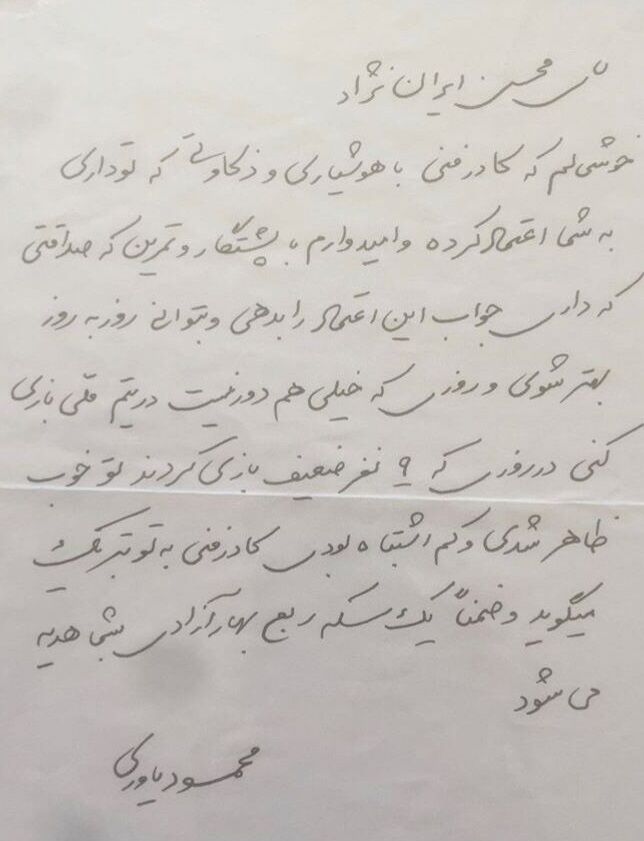 محسن ایران نژاد
خوشحالم که کادر فنی با هوشیاری و ذکاوتی که تو داری
به شما اعتماد کرده و امیدوارم با پشتکار و تمرین که صداقتی
که داری جواب این اعتماد را بدهی و بتوانی روز به روز
بهتر شوی و روزی که خیلی هم دور نیست در تیم ملی بازی
کنی در روزی که ۹ نفر ضعیف بازی کردند تو خوب
ظاهر شدی و کم اشتباه بودی کادر فنی به تو تبریک
میگوید و ضمناً یک سکه ربع بهار آزادی بشما هدیه
می شود
محمود یاوری